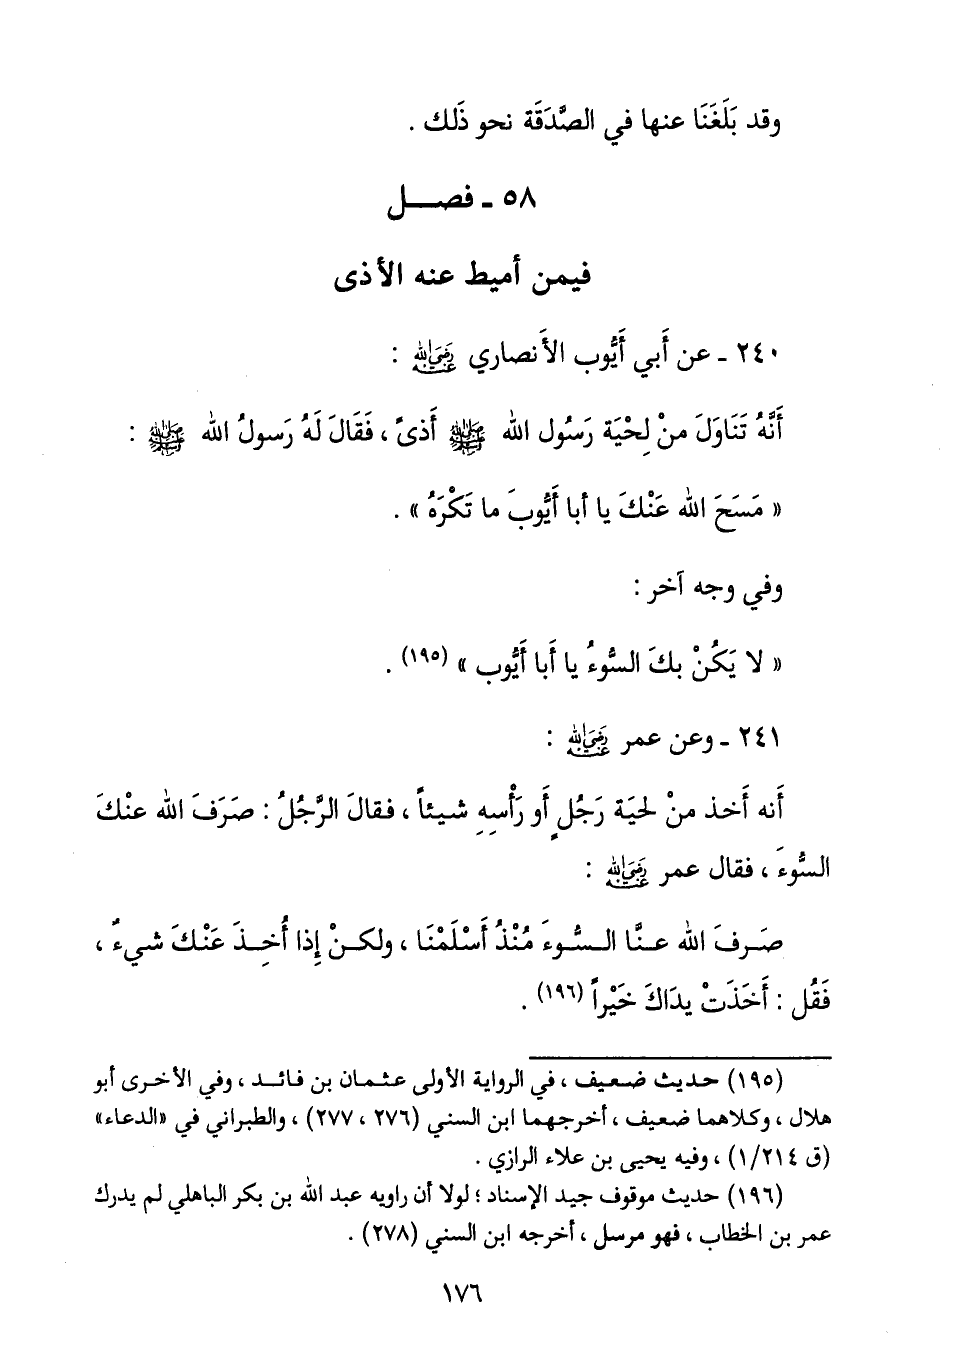 وقد بَلَغَنَا عنها في الصَّدَقَة نحو ذَلك .
٥٨ ـ فصـــل
فيمن أميط عنه الأذى
٢٤٠ ـ عن أَبي أَيُّوب الأَنصاري رضي الله عنه :
أَنَّهُ تَنَاوَلَ منْ لِحْيَة رَسُول الله ﷺ أَذىً ، فَقَالَ لَهُ رَسولُ الله ﷺ :
« مَسَحَ الله عَنْكَ يا أبا أَيُّوبَ ما تَكْرَهُ » .
وفي وجه آخر :
« لا يَكُنْ بكَ السُّوءُ يا أَبا أَيُّوب » (١٩٥) .
٢٤١ ـ وعن عمر رضي الله عنه :
أَنه أَخذ منْ لحيَة رَجُلٍ أَو رَأْسِهِ شيئاً ، فقالَ الرَّجُلُ : صرَفَ الله عنْكَ
السُّوءَ ، فقال عمر رضي الله عنه :
صَرفَ الله عنَّا السُّوءَ مُنْذُ أَسْلَمْنَا ، ولكنْ إِذا أُخِذَ عَنْكَ شيءٌ ،
فَقُل : أَخَذَتْ يدَاكَ خَيْراً (١٩٦) .
(١٩٥) حديث ضعيف ، في الرواية الأولى عثمان بن فائد ، وفي الأخرى أبو
هلال ، وكلاهما ضعيف ، أخرجهما ابن السني (٢٧٦ ، ٢٧٧) ، والطبراني في «الدعاء»
(ق ١/٢١٤) ، وفيه يحيى بن علاء الرازي .
(١٩٦) حديث موقوف جيد الإسناد ؛ لولا أن راويه عبد الله بن بكر الباهلي لم يدرك
عمر بن الخطاب ، فهو مرسل ، أخرجه ابن السني (٢٧٨) .
١٧٦